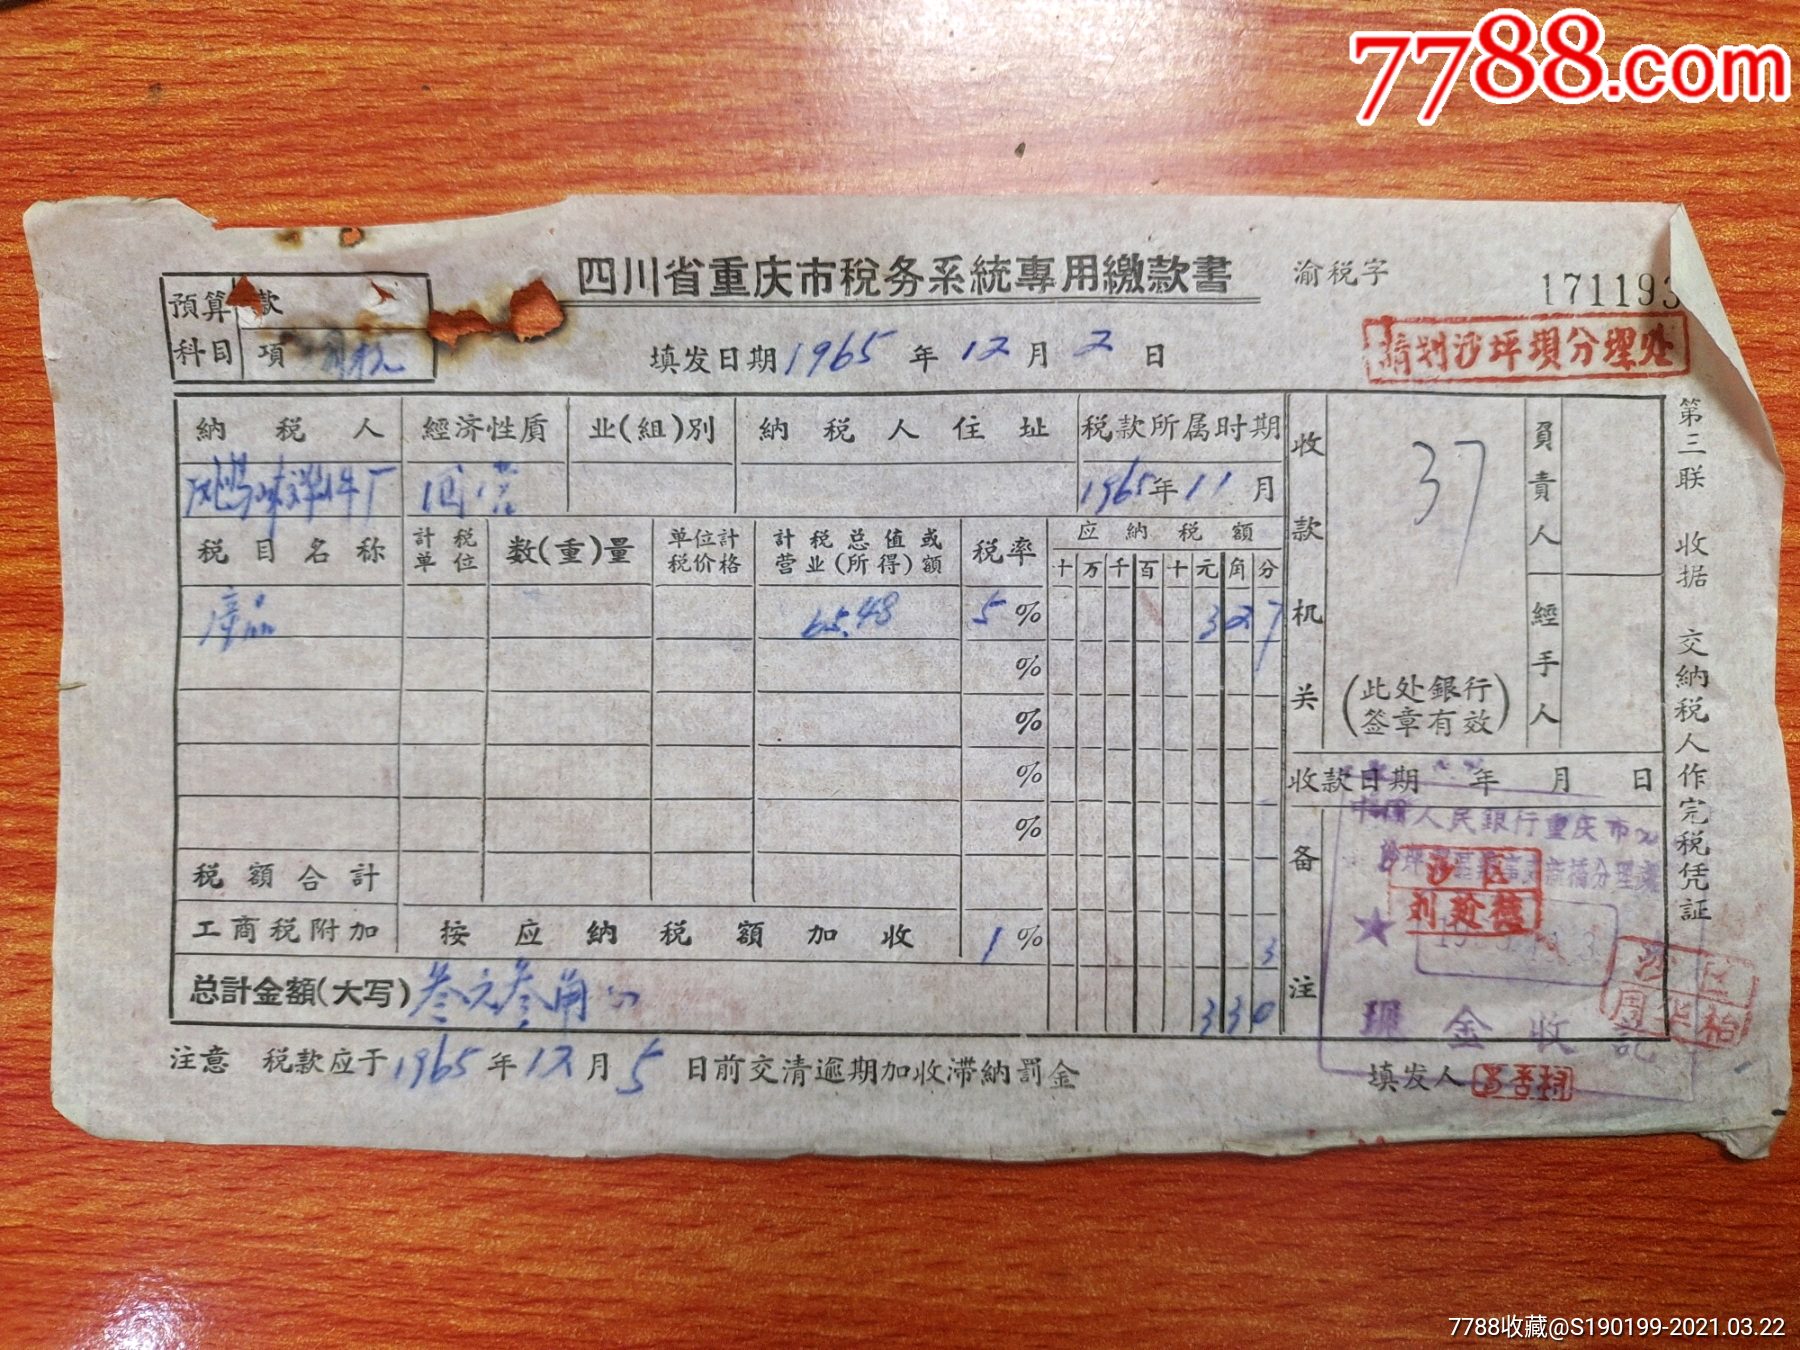 7788.com
四川省重庆市税务系統專用繳款書
渝税字
171193
预算科目
款
項
填发日期1965年12月2日
請划沙坪埧分理处
納税人
經济性质
业(組)別
納税人住址
税款所属时期
厂
1965年11月
税目名称
計税单位
数(重)量
单位計税价格
計税总值或营业(所得)額
税率
应納税額
十万千百十元角分
产品
65.48
5%
327
%
%
%
%
税額合計
工商税附加
按应納税額加收
1%
3
总計金額(大写)
叁元叁角
330
注意 税款应于1965年12月5日前交清逾期加收滞納罰金
收款机关
37
(此处銀行签章有效)
負責人
經手人
收款日期 年 月 日
备注
中国人民銀行重庆市
沙区
現金收
沙区
填发人
第三联 收据 交納税人作完税凭証
7788收藏@S190199-2021.03.22